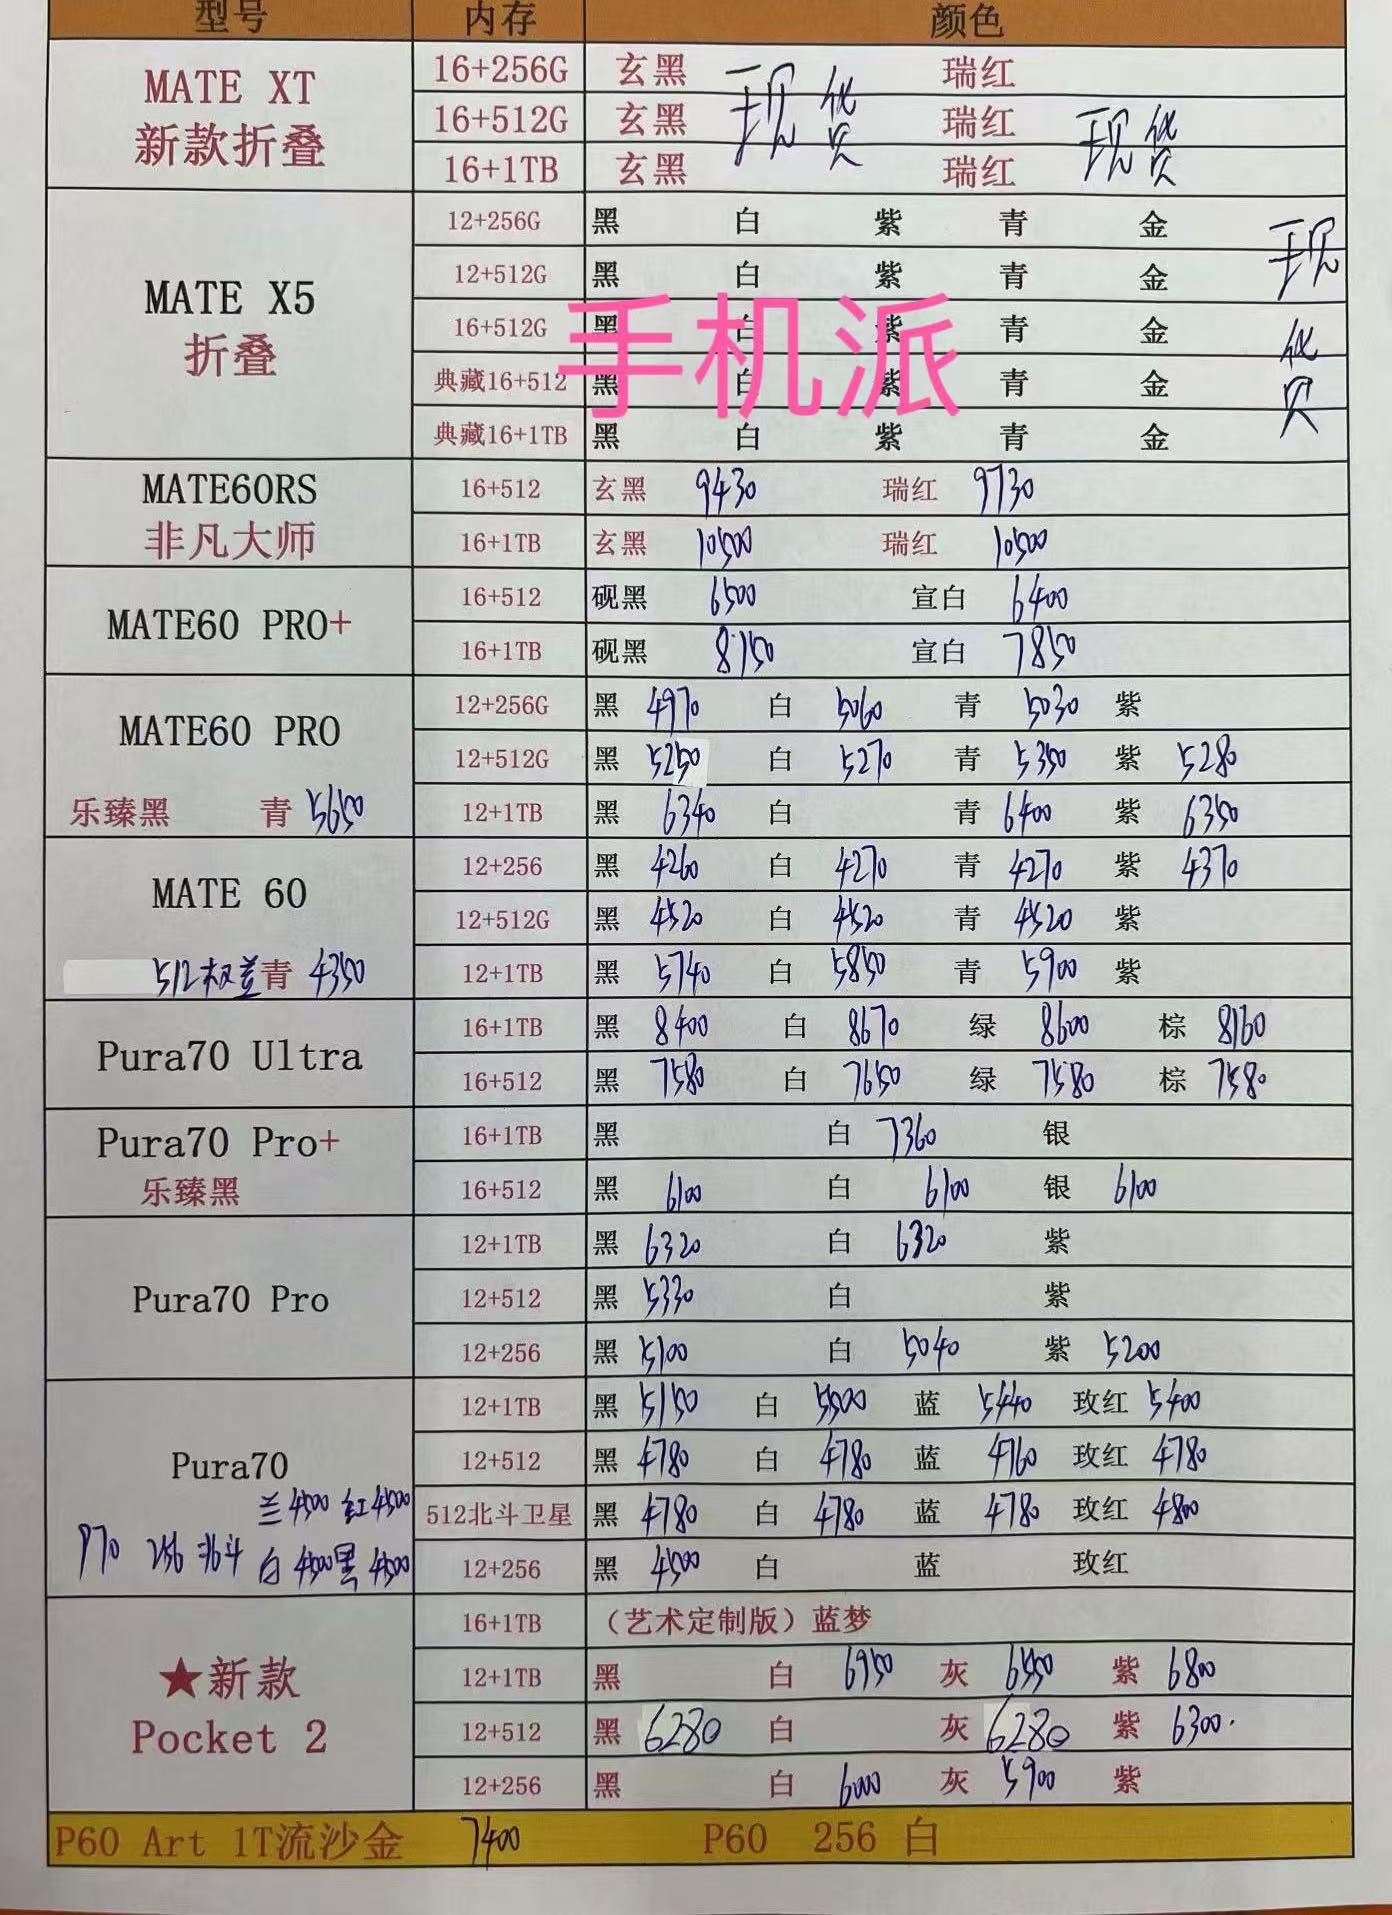 型号 内存 颜色
MATE XT 新款折叠
16+256G 玄黑 现货 瑞红
16+512G 玄黑 瑞红 现货
16+1TB 玄黑 瑞红
MATE X5 折叠
12+256G 黑 白 紫 青 金 现货
12+512G 黑 白 紫 青 金
16+512G 黑 白 紫 青 金
典藏16+512 黑 白 紫 青 金
典藏16+1TB 黑 白 紫 青 金
手机派
MATE60RS 非凡大师
16+512 玄黑 9430 瑞红 9730
16+1TB 玄黑 10500 瑞红 10500
MATE60 PRO+
16+512 砚黑 6500 宣白 6400
16+1TB 砚黑 8150 宣白 7850
MATE60 PRO
乐臻黑 青 5650
12+256G 黑 4970 白 5060 青 5030 紫
12+512G 黑 5250 白 5270 青 5350 紫 5280
12+1TB 黑 6340 白 青 6400 紫 6350
MATE 60
512权益青 4350
12+256 黑 4260 白 4270 青 4270 紫 4370
12+512G 黑 4520 白 4520 青 4520 紫
12+1TB 黑 5740 白 5850 青 5900 紫
Pura70 Ultra
16+1TB 黑 8400 白 8670 绿 8600 棕 8160
16+512 黑 7580 白 7650 绿 7580 棕 7580
Pura70 Pro+
乐臻黑
16+1TB 黑 白 7360 银
16+512 黑 6100 白 6100 银 6100
Pura70 Pro
12+1TB 黑 6320 白 6320 紫
12+512 黑 5330 白 紫
12+256 黑 5100 白 5040 紫 5200
Pura70
兰 4500 红 4500
P70 256 北斗 白 4500 黑 4500
12+1TB 黑 5150 白 5500 蓝 5440 玫红 5400
12+512 黑 4780 白 4780 蓝 4760 玫红 4780
512北斗卫星 黑 4780 白 4780 蓝 4780 玫红 4800
12+256 黑 4500 白 蓝 玫红
★新款 Pocket 2
16+1TB （艺术定制版）蓝梦
12+1TB 黑 白 6950 灰 6550 紫 6800
12+512 黑 6280 白 灰 6280 紫 6300.
12+256 黑 白 6000 灰 5900 紫
P60 Art 1T流沙金 7400 P60 256 白